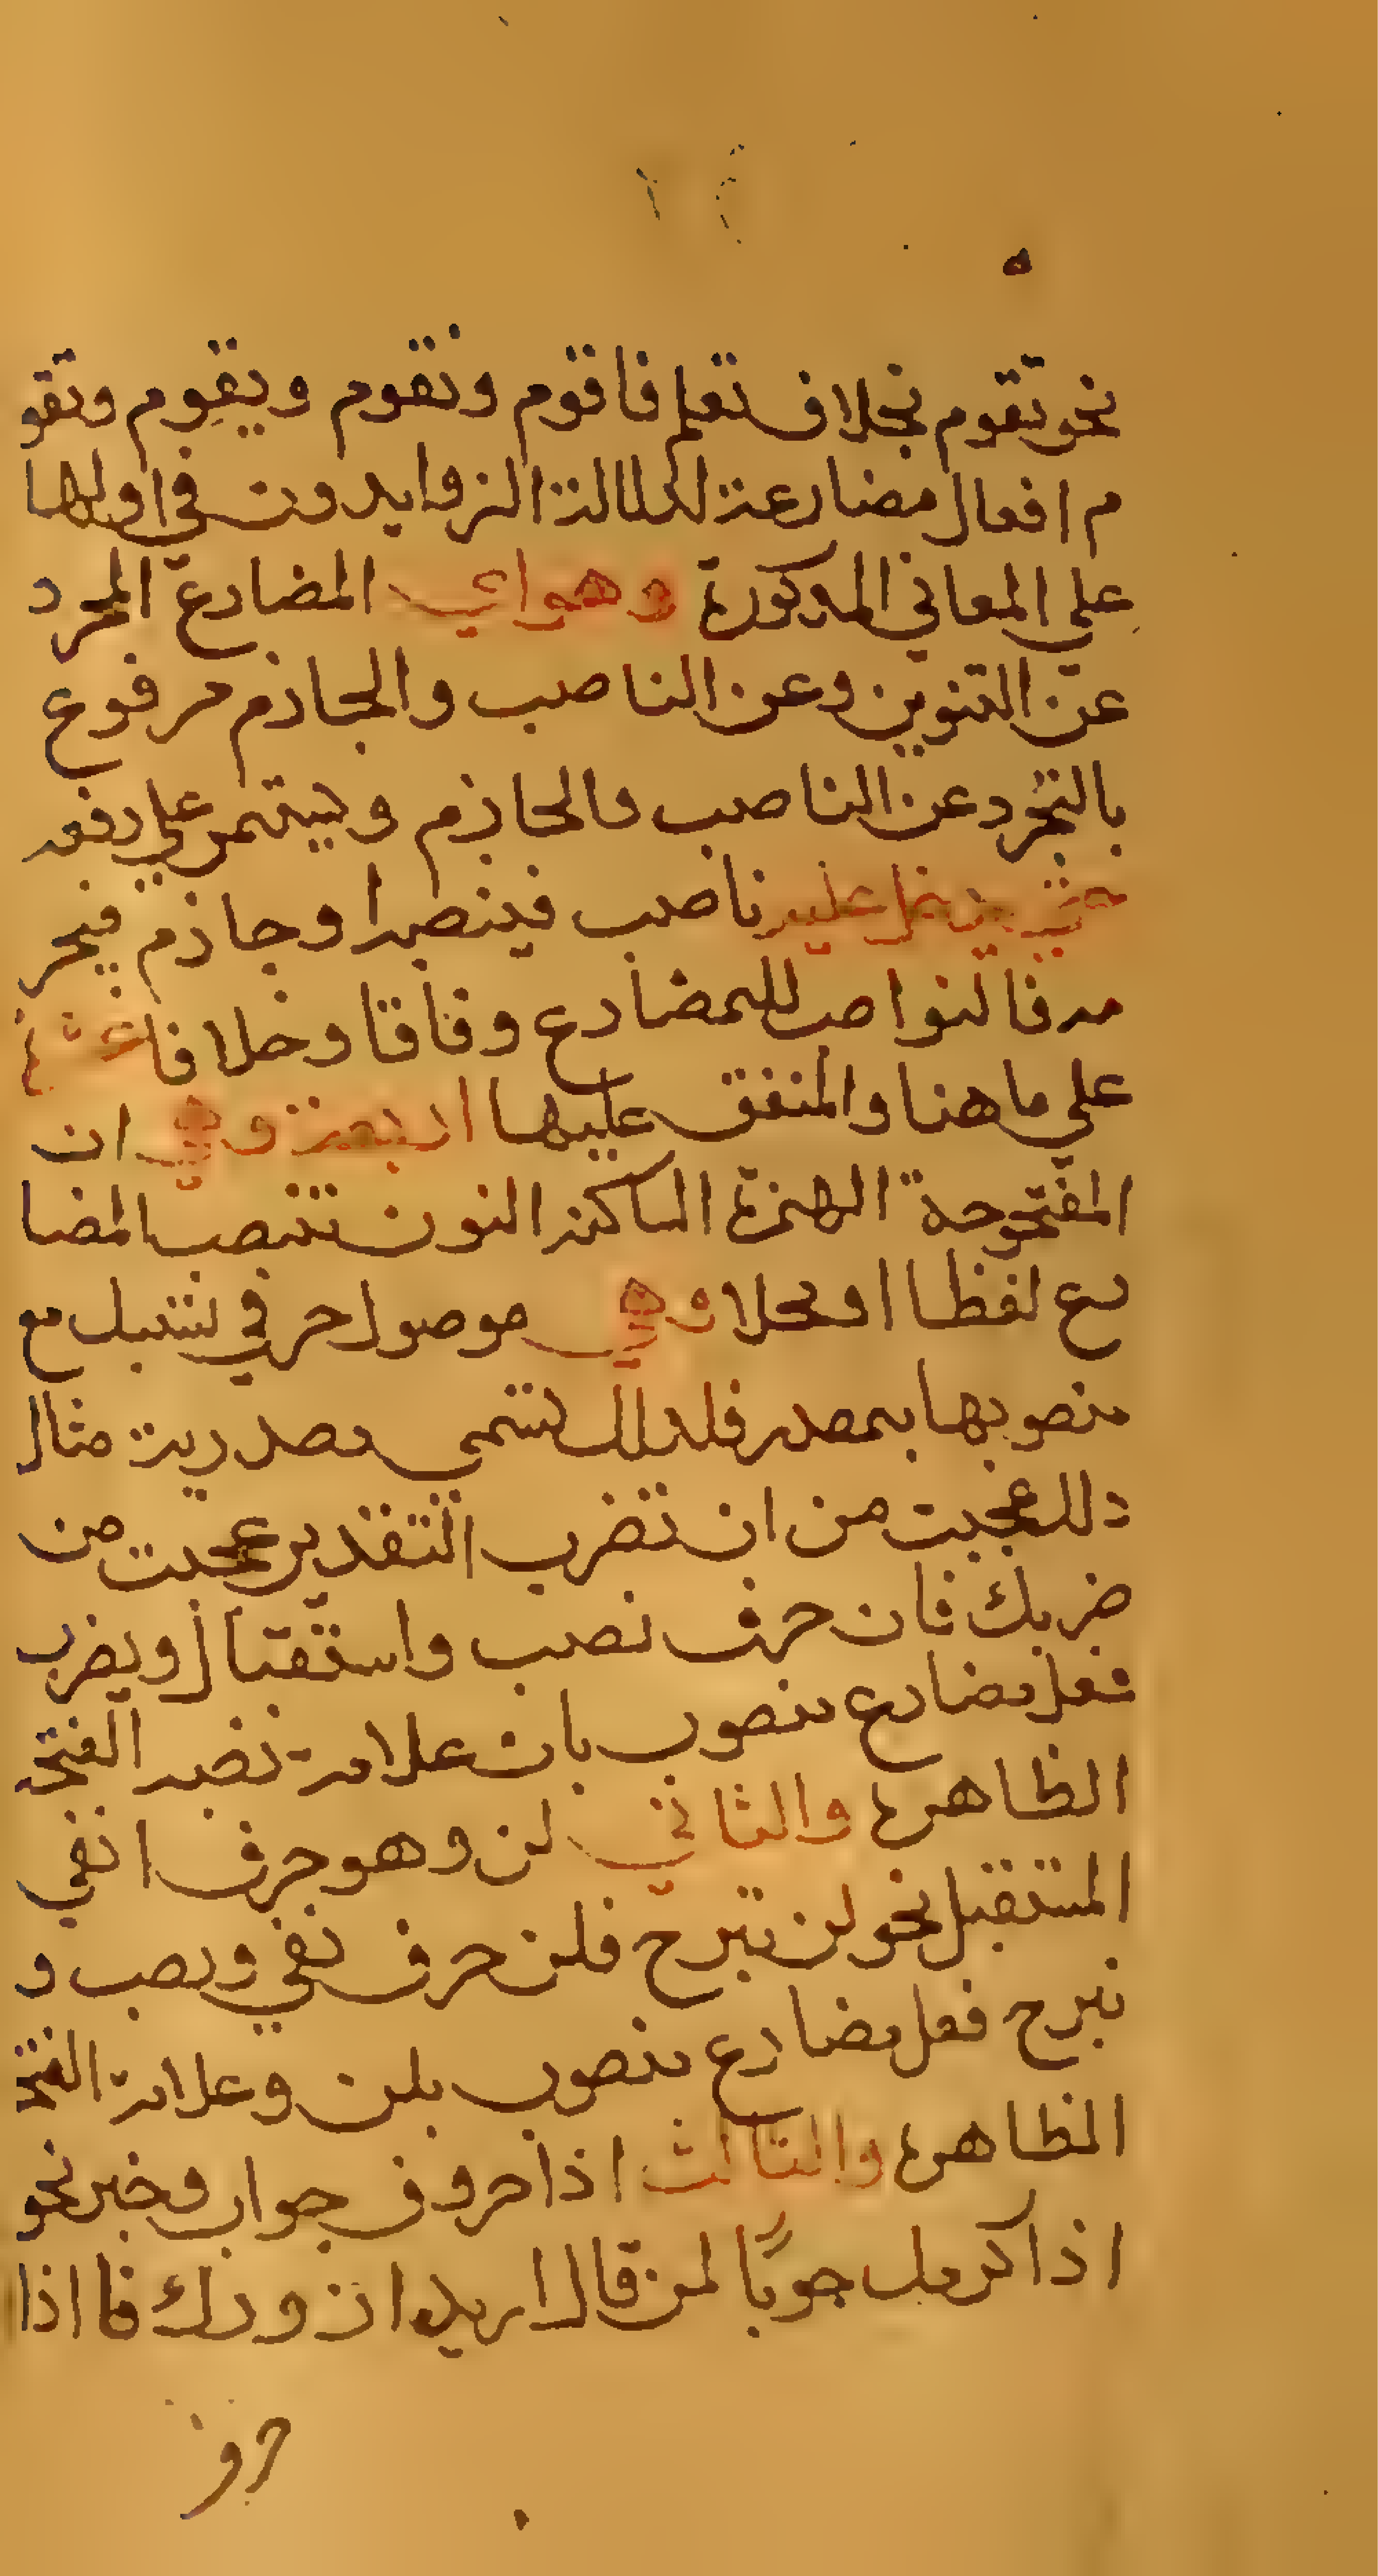 نحو تقوم بخلاف تعلم فاقوم ونقوم ويقوم وتقو
م افعال مضارعة لدلالة الزوايد في اولها
علي المعاني المذكورة وهو اي المضارع المجرد
عن التنوين وعن الناصب والجازم مرفوع
بالتجرد عن الناصب والجازم ويستمر علي رفعه
حتي يدخل عليه ناصب فينصبه او جازم فيجز
مه فالنواصب للمضارع وفاقا وخلافا عشرة
علي ما هنا والمتفق عليها اربعة وهي ان
المفتوحة الهمزة الساكنة النون تنصب المضا
رع لفظا او محلا وهي موصول حرفي تسبك مع
منصوبها بمصدر فلذلك تسمي مصدرية مثال
ذلك عجبت من ان تضرب التقدير عجبت من
ضربك فان حرف نصب واستقبال ويضرب
فعل مضارع منصوب بان علامة نصبه الفتحة
الظاهرة والثاني لن وهو حرف نفي
المستقبل نحو لن نبرح فلن حرف نفي ونصب و
نبرح فعل مضارع منصوب بلن وعلامة الفتحة
الظاهرة والثالث اذا حروف جواب وخبر نحو
اذا اكرمك جوبًا لمن قال اريد ان ورك فا اذا
حرف